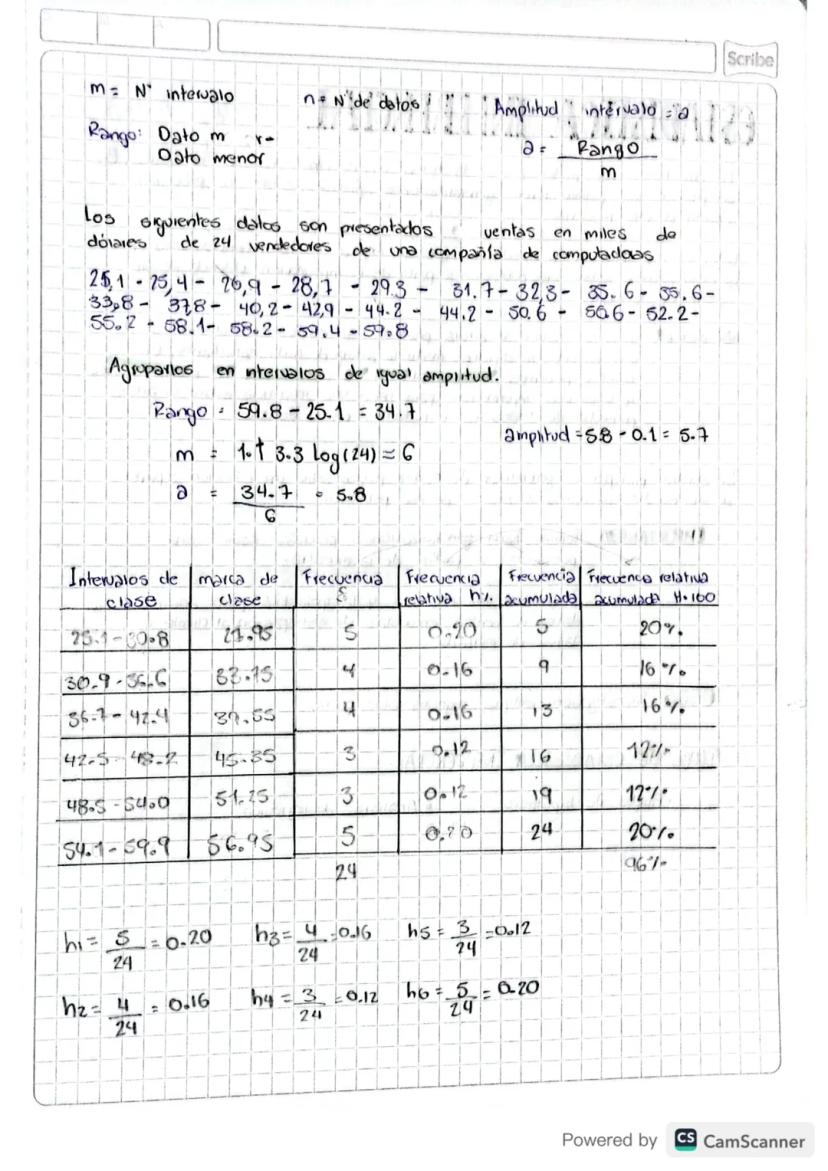 Scribe
m = N° intervalo n = N° de datos Amplitud intervalo = a
Rango: Dato m r- a = Rango
Dato menor m
Los siguientes datos son presentados ventas en miles de
dólares de 24 vendedores de una compañía de computadoas
25,1 - 25,4 - 26,9 - 28,7 - 29.3 - 31.7 - 32,3 - 35.6 - 35.6 -
33,8 - 37,8 - 40,2 - 42,9 - 44.2 - 44.2 - 50.6 - 50.6 - 52.2 -
55.2 - 58.1 - 58.2 - 59.4 - 59.8
Agruparlos en ntervalos de igual amplitud.
Rango = 59.8 - 25.1 = 34.7
amplitud = 5.8 - 0.1 = 5.7
m = 1 + 3.3 log(24) = 6
a = 34.7 = 5.8
6
Intervalos de marca de Frecuencia Frecuencia Frecuencia Frecuenca relativa
clase clase f relativa h%. acumulada acumulada H.100
25.1 - 30.8 27.95 5 0.20 5 20%.
30.9 - 36.6 33.75 4 0.16 9 16%.
36.7 - 42.4 39.55 4 0.16 13 16%.
42.5 - 48.2 45.35 3 0.12 16 12%.
48.5 - 54.0 51.25 3 0.12 19 12%.
54.1 - 59.9 56.95 5 0.20 24 20%.
24 96%
h1 = 5 = 0.20 h3 = 4 = 0.16 h5 = 3 = 0.12
24 24 24
h2 = 4 = 0.16 h4 = 3 = 0.12 h6 = 5 = 0.20
24 24 24
Powered by CS CamScanner